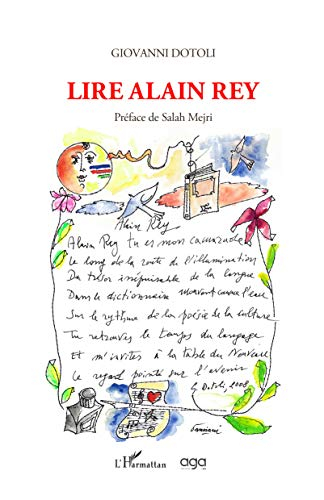 GIOVANNI DOTOLI
LIRE ALAIN REY
Préface de Salah Mejri
Alain Rey
Alain Rey tu es mon camarade
Le long de la route de l'illumination
Du trésor inépuisable de la langue
Dans le dictionnaire mouvant comme l'eau
Sur le rythme de la poésie de la culture
Tu retrouves le temps du langage
Et m'invites à la table du Nouveau
Le regard pointé sur l'avenir
G. Dotoli, 2008
L'Harmattan
aga